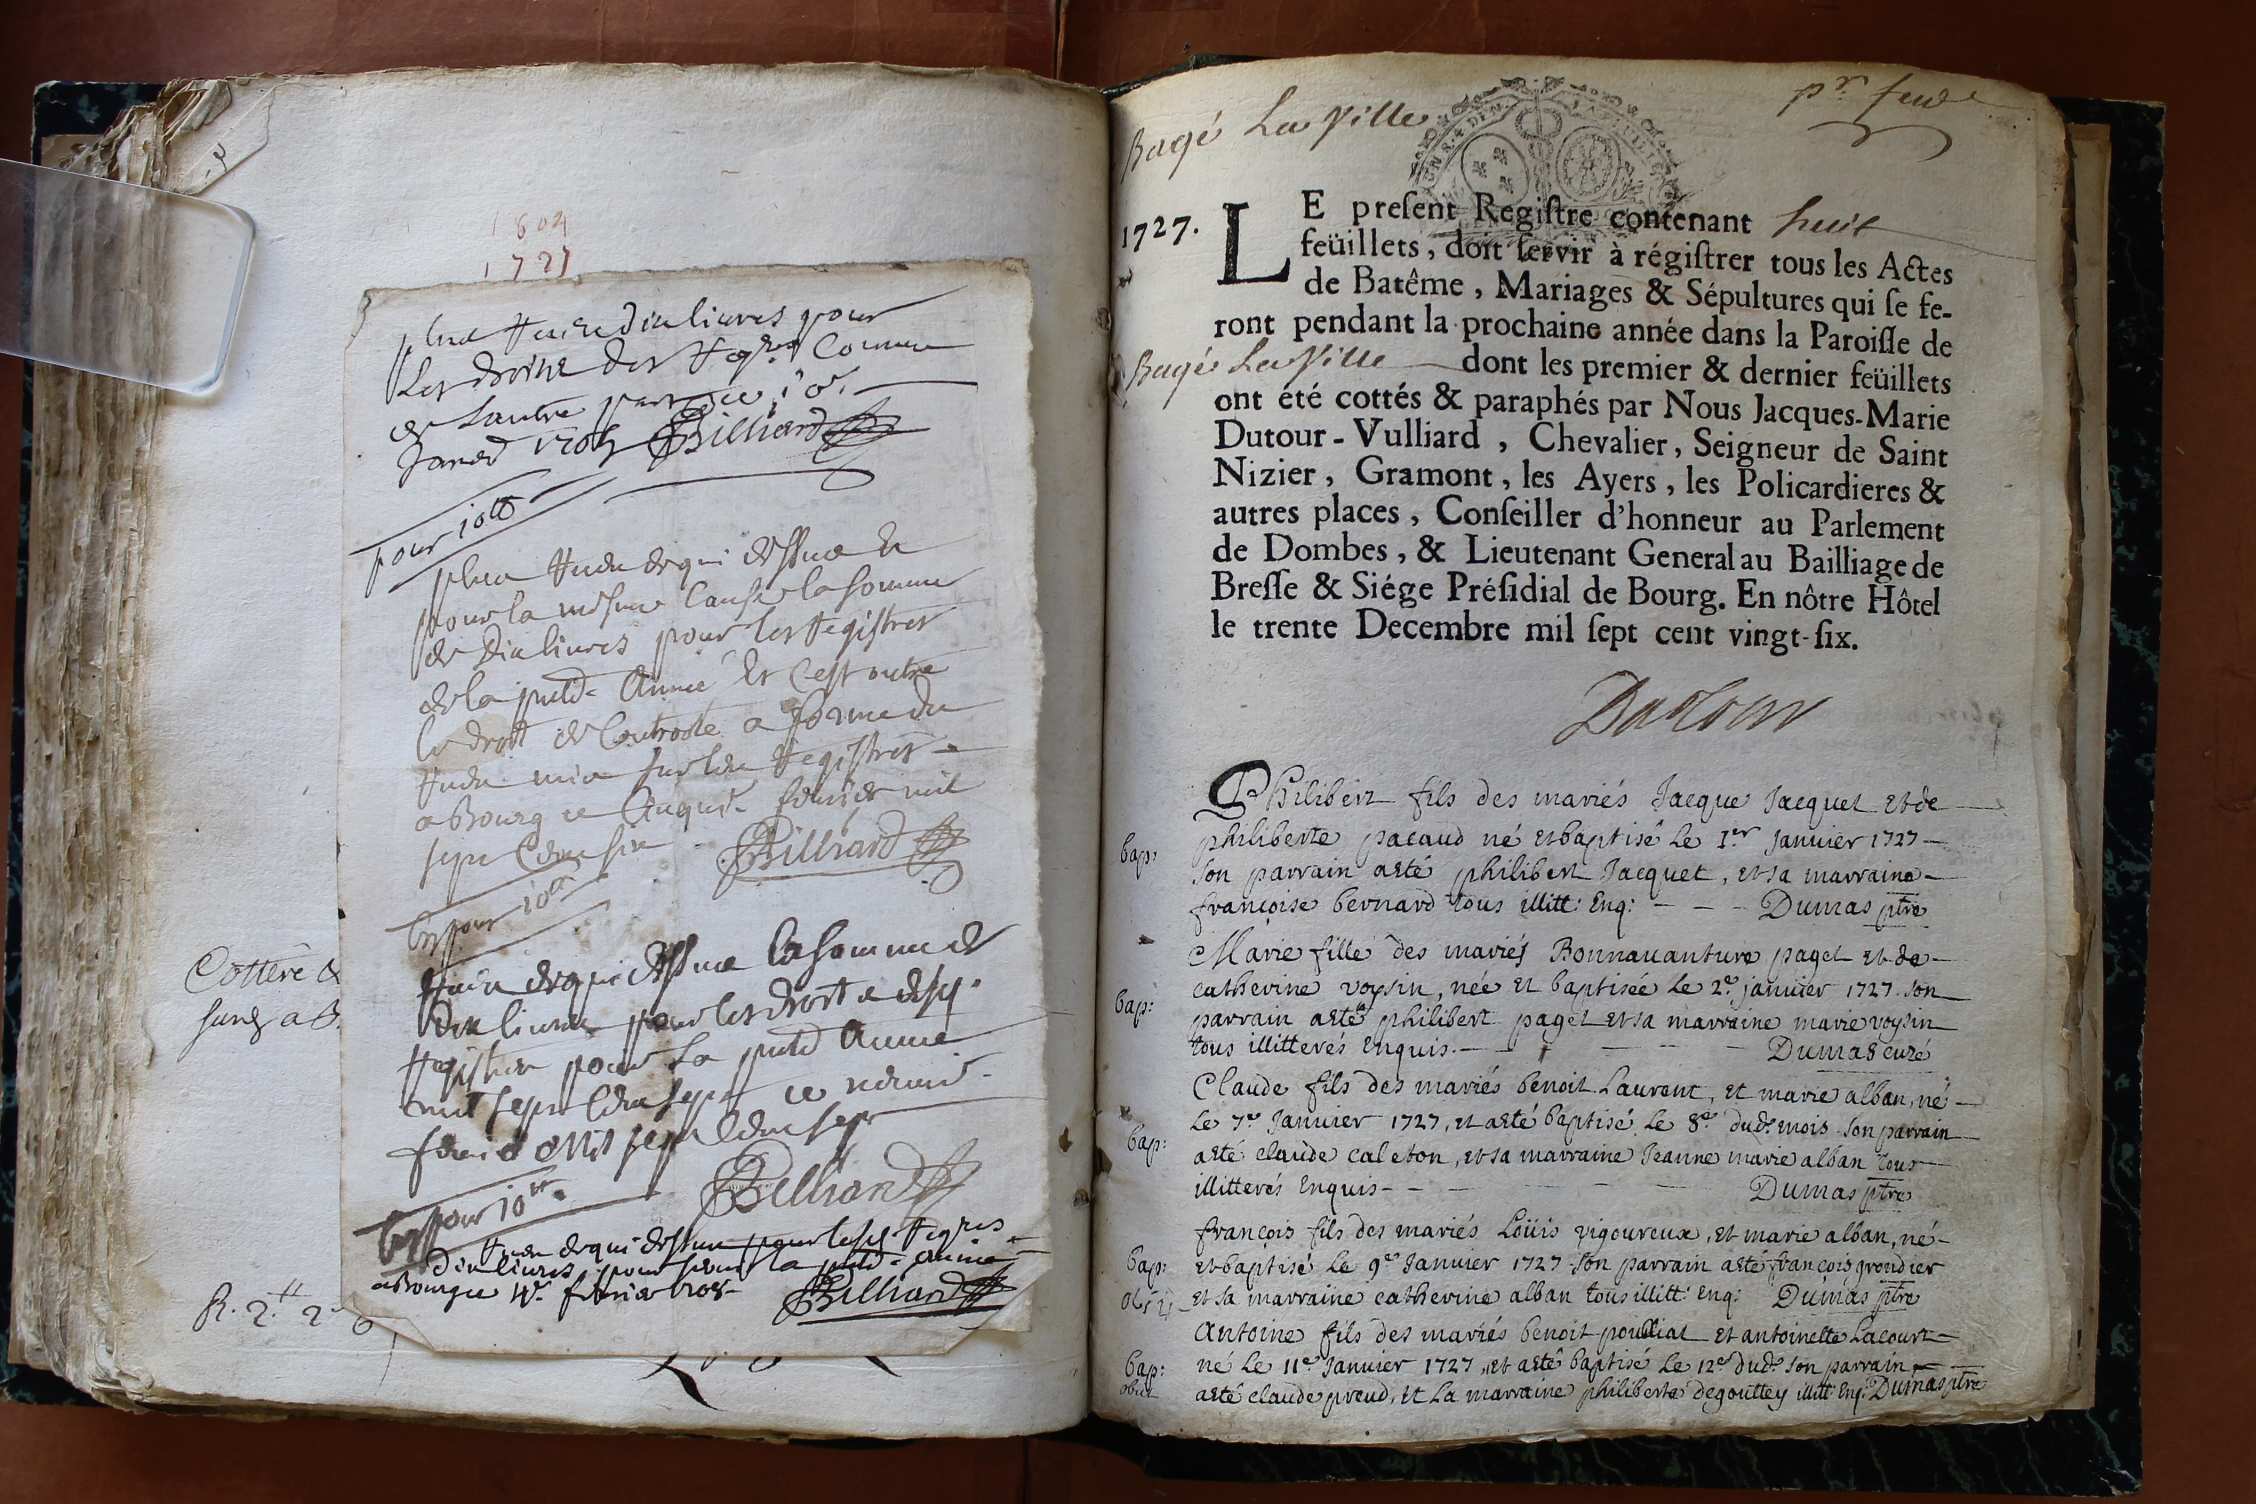 1804
1727
plus receu dix livres pour
Les droits des Regres Comme
de Lautre part ce 10e
Janvier 1705 Billiard
pour 10tt
plus receu de qui dessus et
pour la mesme cause la somme
de dix livres pour les Registres
de la pnte Année Et c'est outre
le droit de Controole a forme du
receu mis sur les Registres
a Bourg ce fevrier mil
sept Cent six Billiard
bon pour 10tt
Receu de qui dessus la somme de
dix livres pour les droits desd.
Registres pour la pnte Année
mil sept Cent sept ce
fevrier Mil sept Cent sept
Billiard
bon pour 10tt
Receu de qui dessus pour lesd. Regres
dix livres pour la pnte année
a Bourg ce fevrier 1708
Billiard
Cotteré &
R. 2.tt 2
Bagé La Ville
pr. feuil
1727.
LE present Registre contenant huit
feüillets, doit servir à régistrer tous les Actes
de Batême, Mariages & Sépultures qui se fe-
ront pendant la prochaine année dans la Paroisse de
Bagé La Ville dont les premier & dernier feüillets
ont été cottés & paraphés par Nous Jacques-Marie
Dutour-Vulliard, Chevalier, Seigneur de Saint
Nizier, Gramont, les Ayers, les Policardieres &
autres places, Conseiller d'honneur au Parlement
de Dombes, & Lieutenant General au Bailliage de
Bresse & Siége Présidial de Bourg. En nôtre Hôtel
le trente Decembre mil sept cent vingt-six.
Dutour
Philibert fils des mariés Jacque Jacquet et de
bap: philiberte pacaud né et baptisé Le 1.er Janvier 1727
son parrain a eté philibert Jacquet, et sa marraine
françoise bernard tous illitt: Enq: - - - Dumas ptre
Marie fille des mariés Bonnavanture paget et de
bap: catherine voysin, née et baptisée Le 2.e janvier 1727. son
parrain a eté philibert paget et sa marraine marie voysin
tous illitterés Enquis. - - - Dumas curé
Claude fils des mariés benoit Laurent, et marie alban, né
Le 7.e Janvier 1727, et a eté baptisé Le 8.e dud. mois son parrain
bap: a eté claude caleton, et sa marraine Jeanne marie alban tous
illitterés Enquis - - - Dumas ptre
françois fils des mariés Loüis vigoureux, et marie alban, né
bap: et baptisé Le 9.e Janvier 1727 son parrain a eté françois grondier
et sa marraine catherine alban tous illitt: Enq: Dumas ptre
Antoine fils des mariés benoit poulliat et antoinette Lacourt
bap: né Le 11.e Janvier 1727, et a eté baptisé Le 12.e dud. son parrain
obiit a eté claude preud, et La marraine philiberte degouttey illitt Enq: Dumas ptre